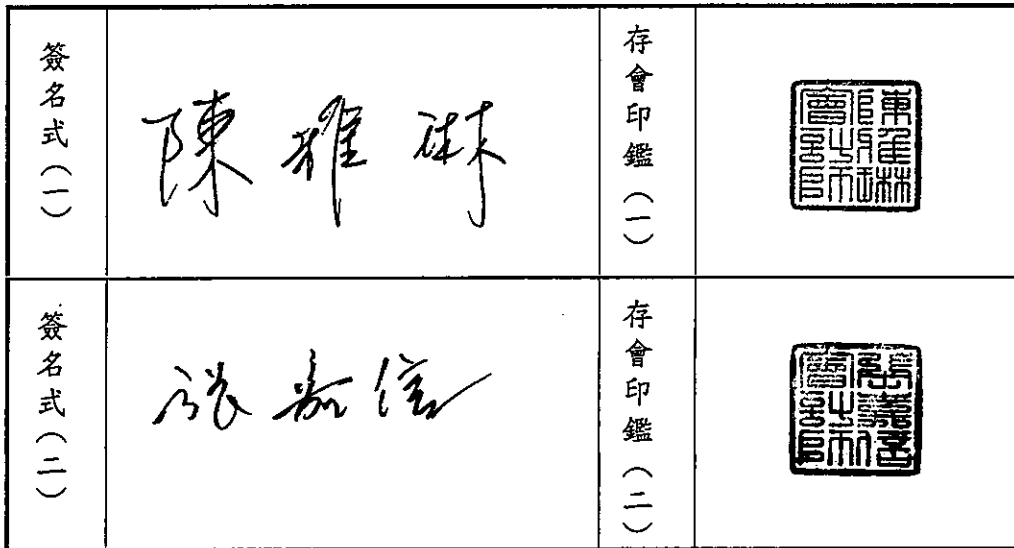 簽名式(一)
陳雅琳
存會印鑑(一)
陳雅琳會計師印
簽名式(二)
張嘉信
存會印鑑(二)
張嘉信會計師印